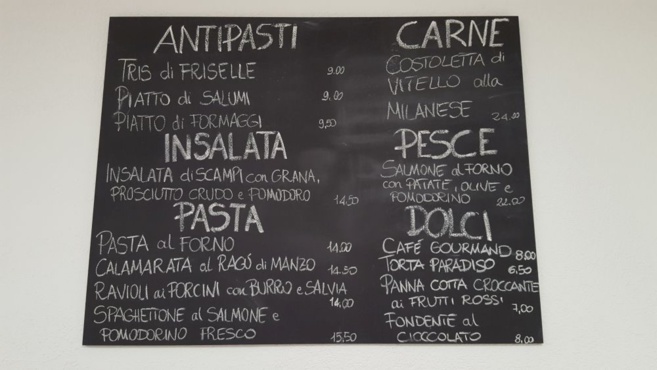 ANTIPASTI
TRIS di FRISELLE 9.00
PIATTO di SALUMI 9,00
PIATTO di FORMAGGI 9,50
INSALATA
INSALATA di SCAMPI con GRANA,
PROSCIUTTO CRUDO e POMODORO 14,50
PASTA
PASTA al FORNO 11.00
CALAMARATA al RAGÚ di MANZO 14.50
RAVIOLI ai PORCINI con BURRO e SALVIA
14,00
SPAGHETTONE al SALMONE e
POMODORINO FRESCO 15,50
CARNE
COSTOLETTA di
VITELLO alla
MILANESE 24.00
PESCE
SALMONE al FORNO
con PATATE, OLIVE e
POMODORINO 22.00
DOLCI
CAFÉ GOURMAND 8,00
TORTA PARADISO 6.50
PANNA COTTA CROCCANTE
ai FRUTTI ROSSI 7,00
FONDENTE al
CIOCCOLATO 8,00